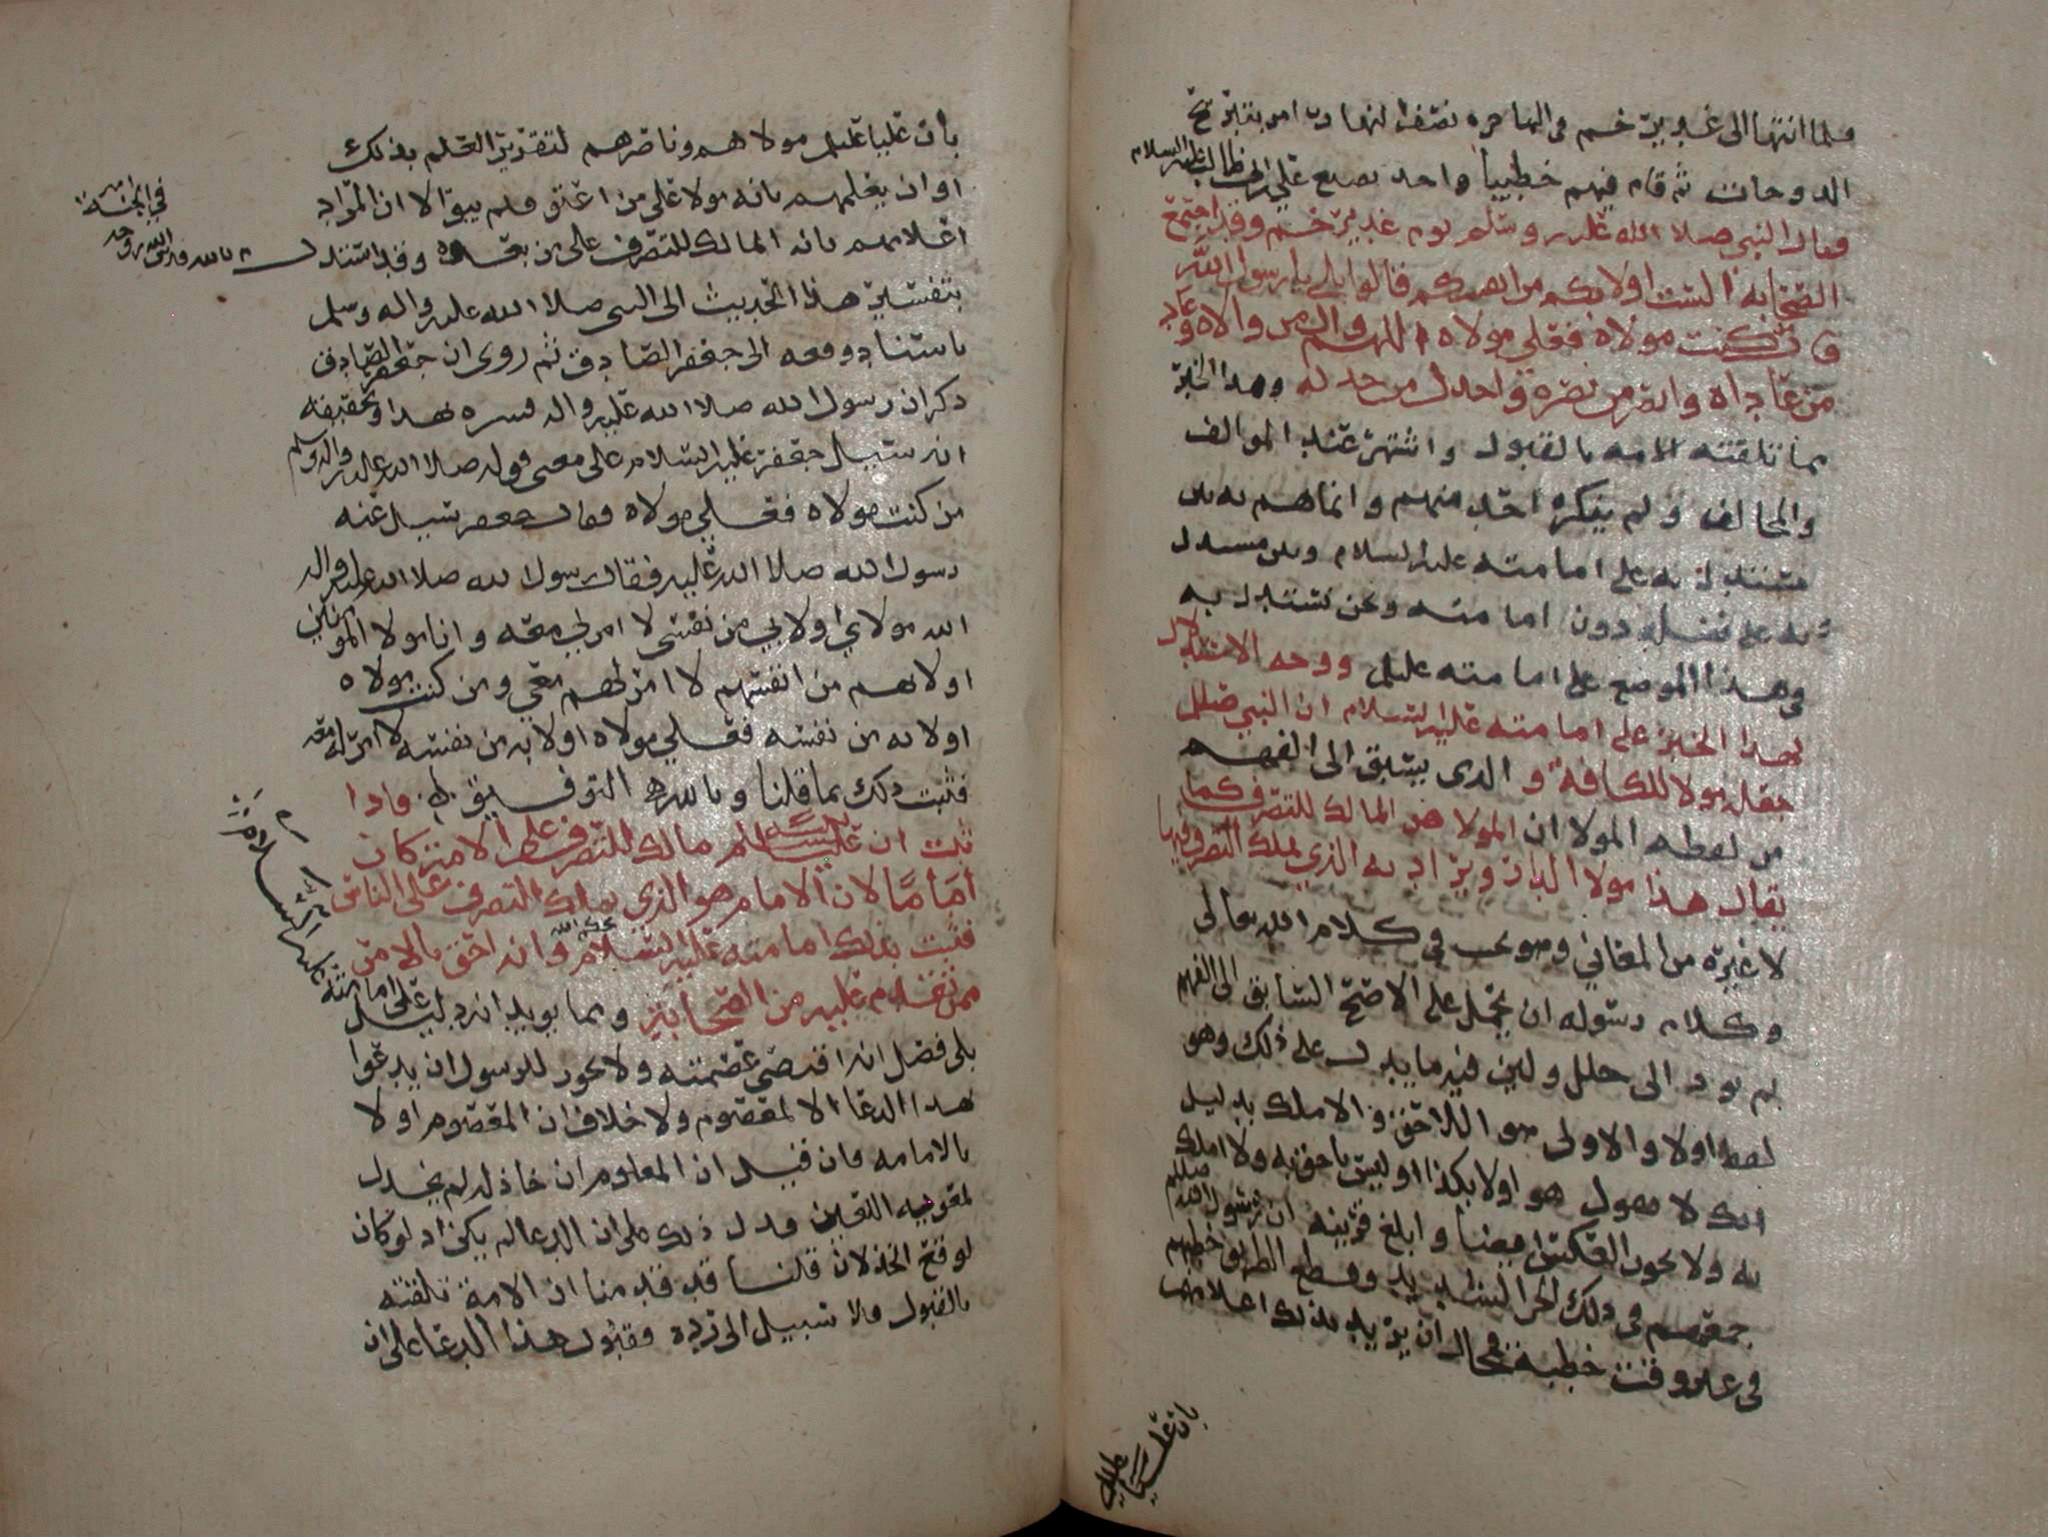 فلما انتها الى غدير خم في الهاجره نصف النهار امر بتقرح
الدوحات ثم قام فيهم خطيبا واخد بضبع علي ابن ابي طالب عليه السلام
وقال النبي صلا الله عليه وسلم يوم غدير خم وقد اجتمع
الصحابه الست اولا بكم من انفسكم قالوا بلى يا رسول الله
قال من كنت مولاه فعلي مولاه اللهم وال من والاه وعاد
من عاداه وانصر من نصره واخدل من خدله وهدا الخبر
مما تلقته الامه بالقبول واشتهر عند الموالف
والمخالف ولم ينكره احد منهم وانما هم به بين
مستدل به على امامته عليه السلام وبين مستدل
به على فضله دون امامته ونحن نستدل به
في هذا الموضع على امامته عليلم ووجه الاستدلال
بهدا الخبر على امامته عليه السلام ان النبي صللم
جعله مولا للكافه و الدي يسبق الى الفهم
من لفظه المولا ان المولا هو المالك للتصرف كما
يقال هذا مولا الدار ويراد به الذي يملك التصرف فيها
لا غيره من المعاني وهو يجب في كلام الله تعالى
وكلام رسوله ان يحمل على الاصح السابق الى الفهم
لم يود الى خلل وليس فيه ما يدل على ذلك وهو
لفظ اولا والاولى هو الاحق والاملك بدليل
انك لا تقول هو اولا بكذا وليس باحق به ولا املك
به ولا يجوز العكس ايضا وابلغ قرينه ان رسول الله صللم
جمعهم في ذلك الحر الشديد وقطع الطريق خطبهم
في غير وقت خطبة فمحال ان يريد بذلك اعلامهم
بان عليا عليلم
بان عليا عليلم مولاهم وناصرهم لتقرير العلم بذلك
او ان يعلمهم بانه مولا على من اعتق فلم يبق الا ان المراد
اعلامهم بانه المالك للتصرف على من بعده وقد استدل م بالله قدس الله روحه
في الجنة
بتفسير هذا الحديث الى النبي صلا الله عليه واله وسلم
باسناد رفعه الى جعفر الصادق ثم روى ان جعفر الصادق
دكر ان رسول الله صلا الله عليه واله فسره بهدا وتحقيقه
انه سيل جعفر عليه السلام على معنى قوله صلا الله عليه واله وسلم
من كنت مولاه فعلي مولاه فقال جعفر سيل عنه
رسول الله صلا الله عليه فقال رسول الله صلا الله عليه واله
الله مولاي اولا بي من نفسي لا امر لي معه وانا مولا المومنين
اولا بهم من انفسهم لا امر لهم معي ومن كنت مولاه
اولا به من نفسه فعلي مولاه اولا به من نفسه لا امر له معه
فثبت دلك بما قلنا وبالله التوفيق فادا
ثبت ان عليا عليلم مالك للتصرف على الامه كان
اماما لان الامام هو الذي يملك التصرف على الناس
فثبت بذلك امامته عليه السلام بحكم الله وانه احق بالامر
ممن تقدم عليه من الصحابه ومما يويد انه دليل على امامته
عليه السلام
بلى فضل انه اقتضى عصمته ولا يجوز للرسول ان يدعوا
هدا الدعا الا لمعصوم ولا خلاف ان المعصوم اولا
بالامامه فان قيل ان المعلوم ان خاذله لم يخدل
لمعويه اللعين فدل ذلك على ان الدعا لم يكن اد لو كان
لوقع الخذلان قلنا قد قدمنا ان الامة تلقته
بالقبول ولا سبيل الى رده فقبول هذا الدعا على ان